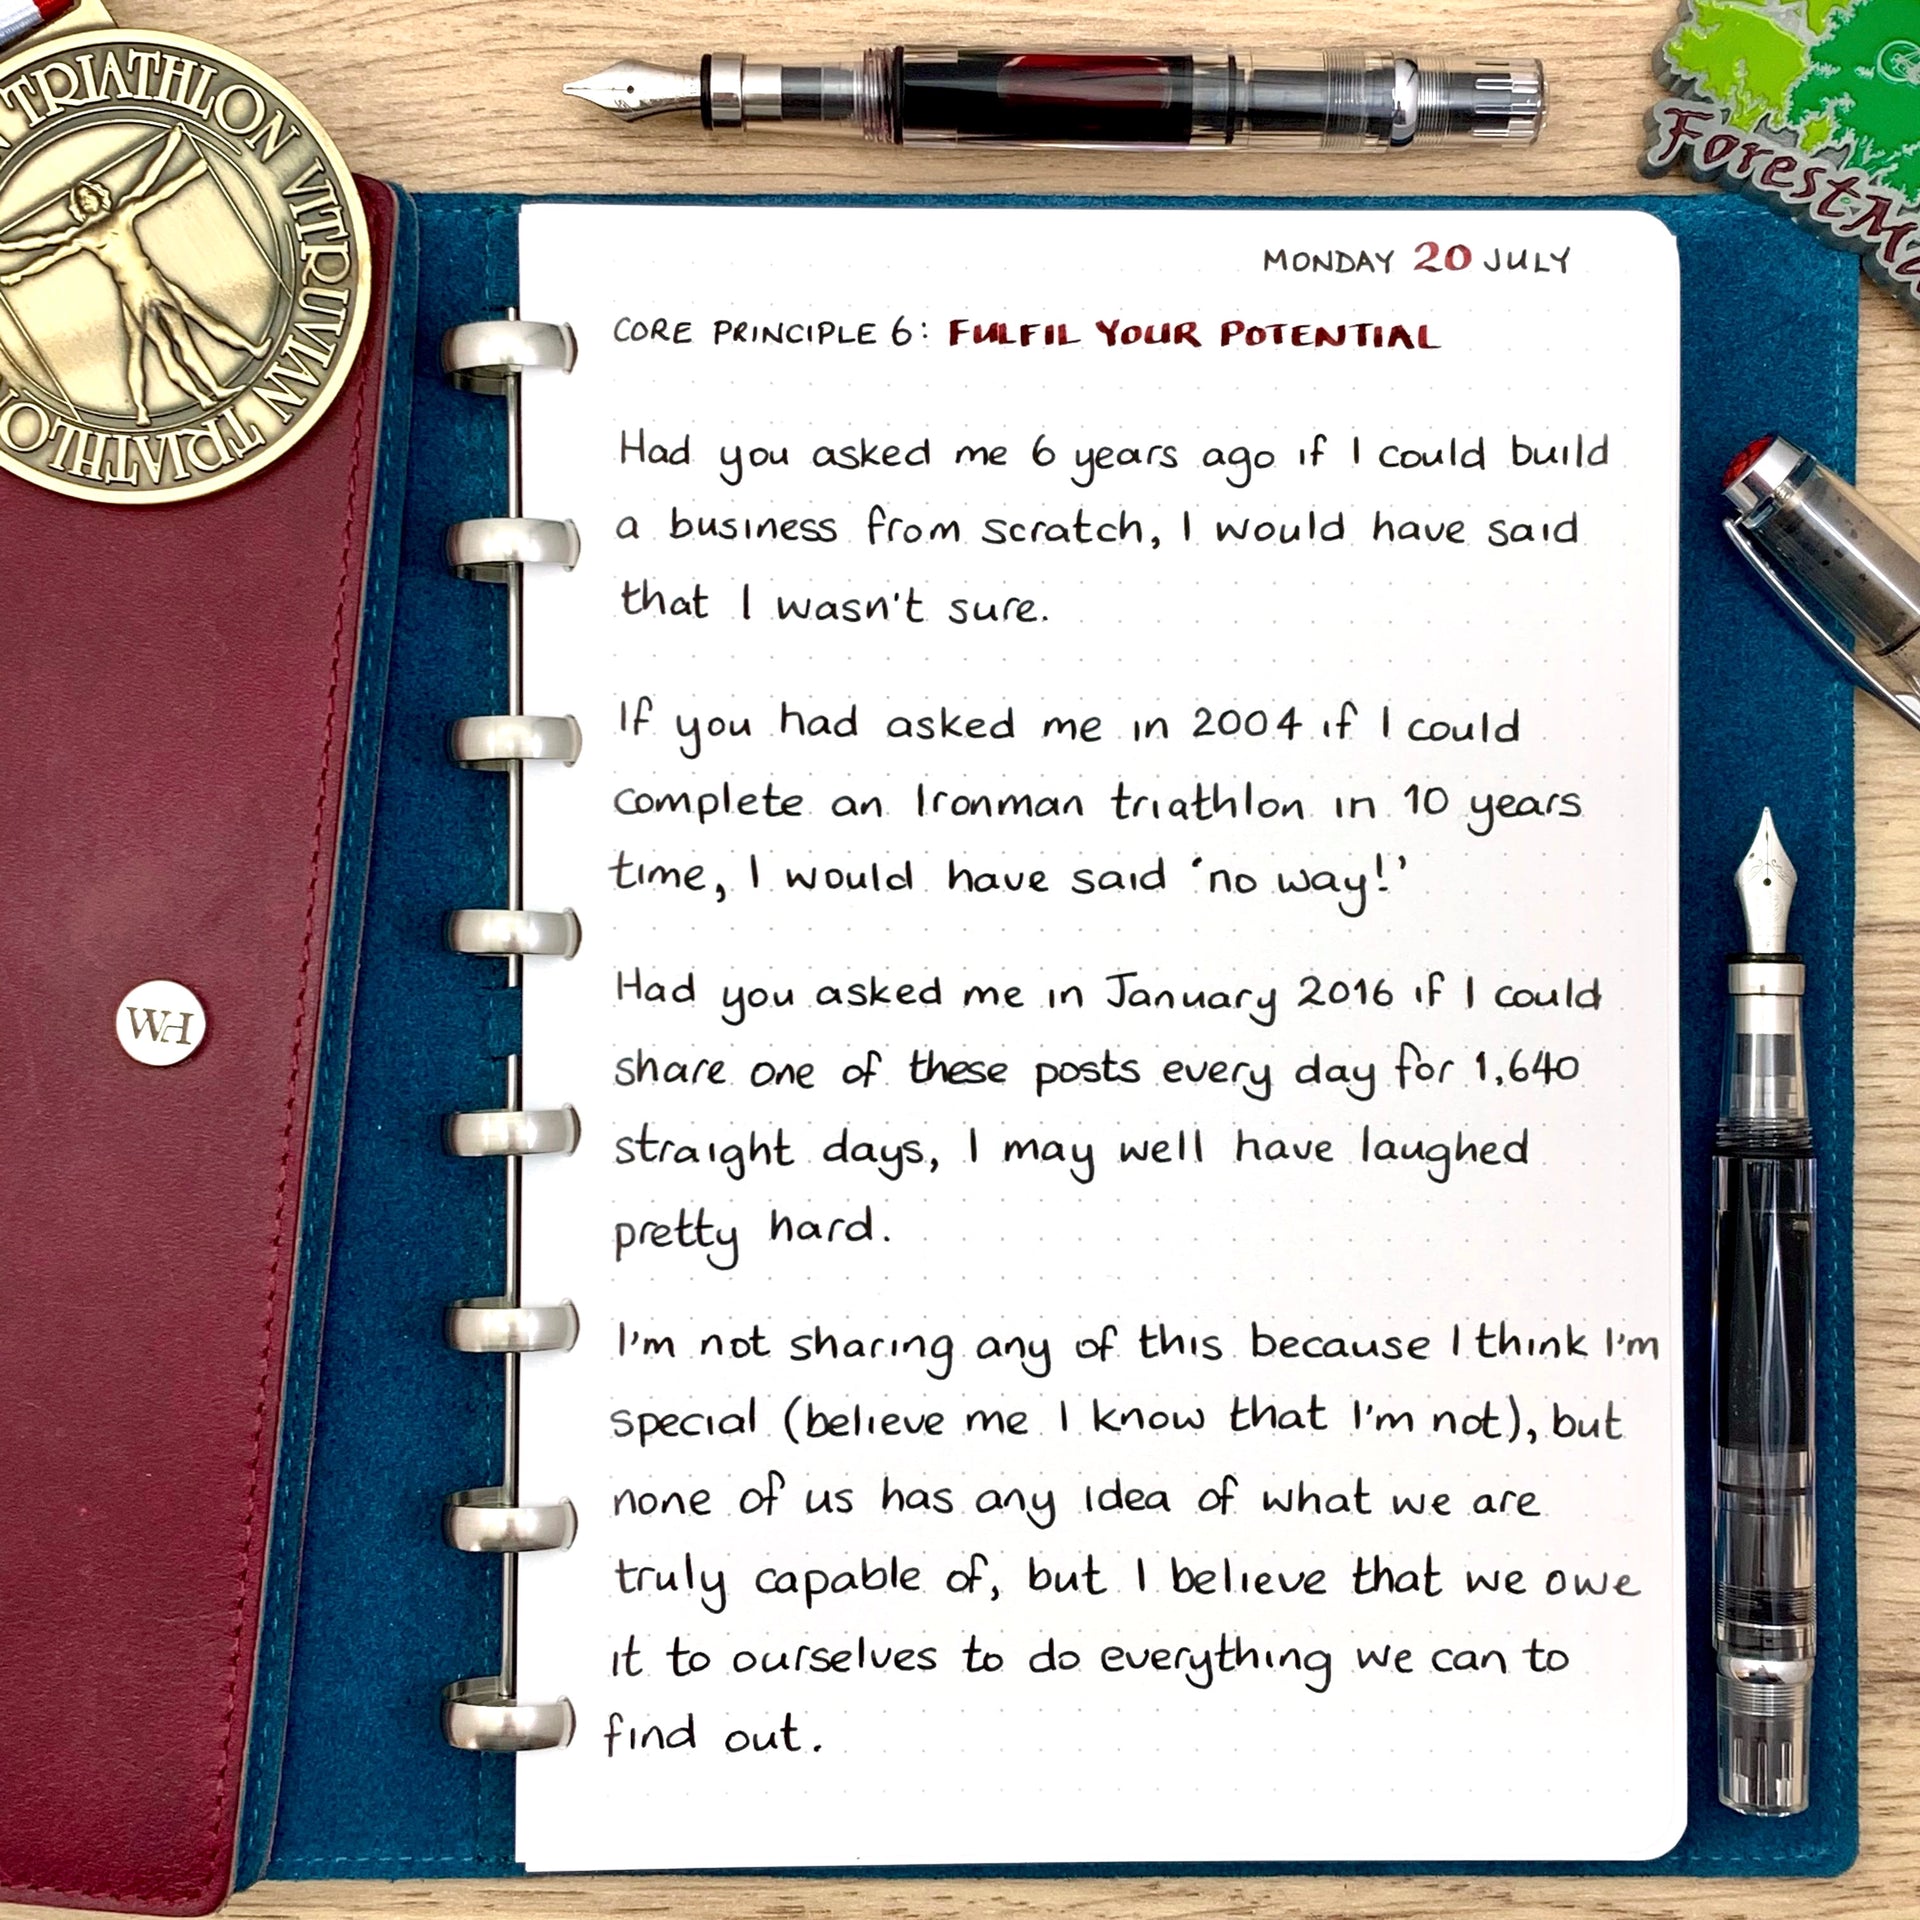 TRIATHLON VITRUVIAN TRIATHLO
MONDAY 20 JULY
CORE PRINCIPLE 6: FULFIL YOUR POTENTIAL
Had you asked me 6 years ago if I could build
a business from scratch, I would have said
that I wasn't sure.
If you had asked me in 2004 if I could
complete an Ironman triathlon in 10 years
time, I would have said 'no way!'
Had you asked me in January 2016 if I could
share one of these posts every day for 1,640
straight days, I may well have laughed
pretty hard.
I'm not sharing any of this because I think I'm
special (believe me I know that I'm not), but
none of us has any idea of what we are
truly capable of, but I believe that we owe
it to ourselves to do everything we can to
find out.
WH
ForestMa